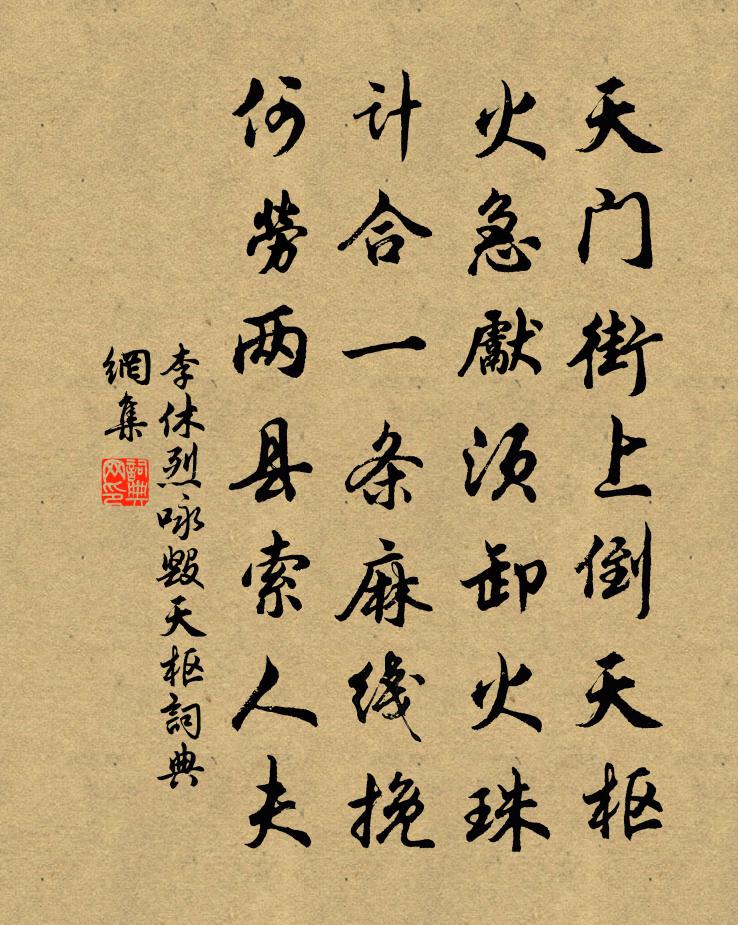 天门街上倒天枢
火急獻须卸火珠
计合一条麻线挽
何勞两县索人夫
李休烈咏毀天枢詞典
網集
詞典网印